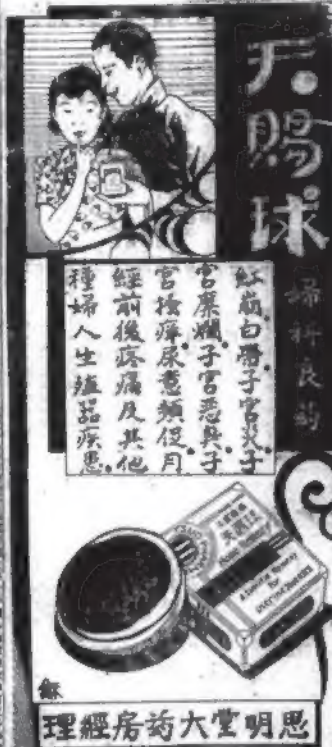 天賜球
婦科良药
紅崩白帶子宮炎子
宮糜爛子宮惡臭子
宮搔痒尿意頻促月
經前後疼痛及其他
種婦人生殖器疾患
思明堂大药房經理